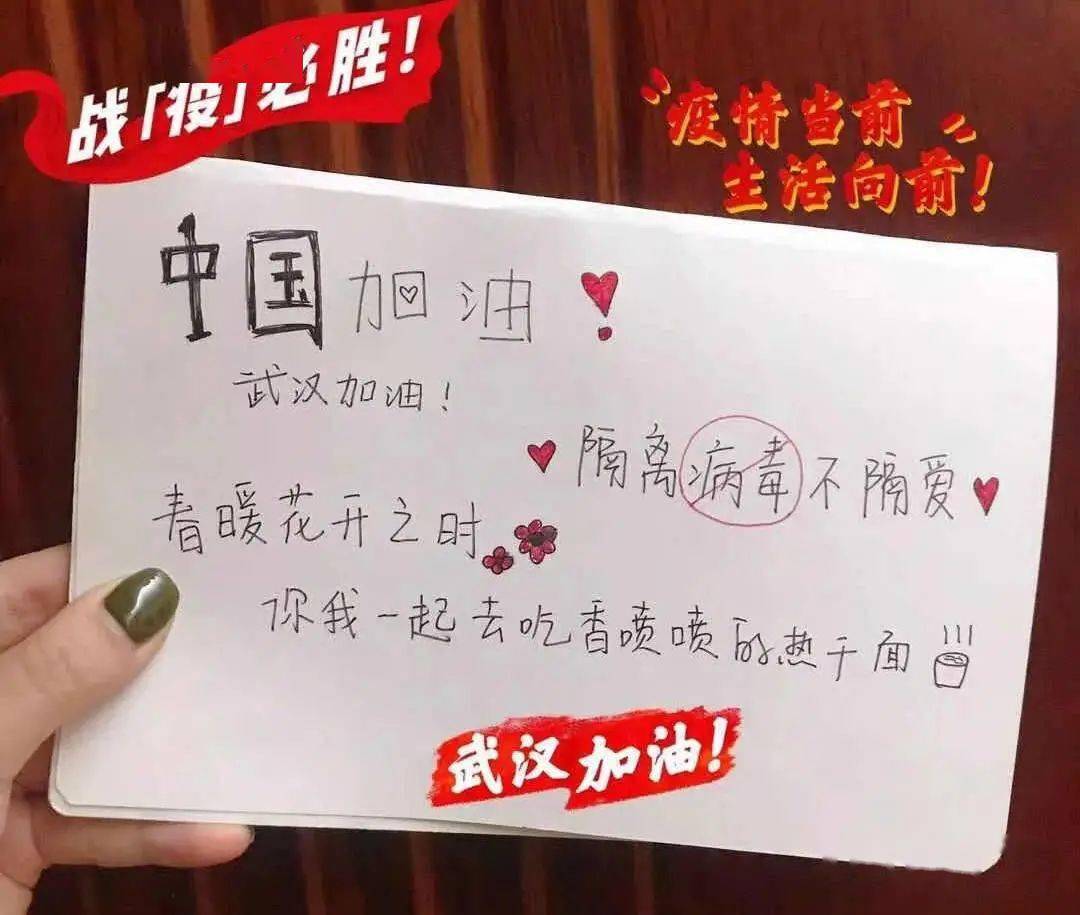 战「疫」必胜!
"疫情当前
生活向前!
中国加油!
武汉加油!
隔离病毒不隔爱
春暖花开之时
你我一起去吃香喷喷的热干面
武汉加油!